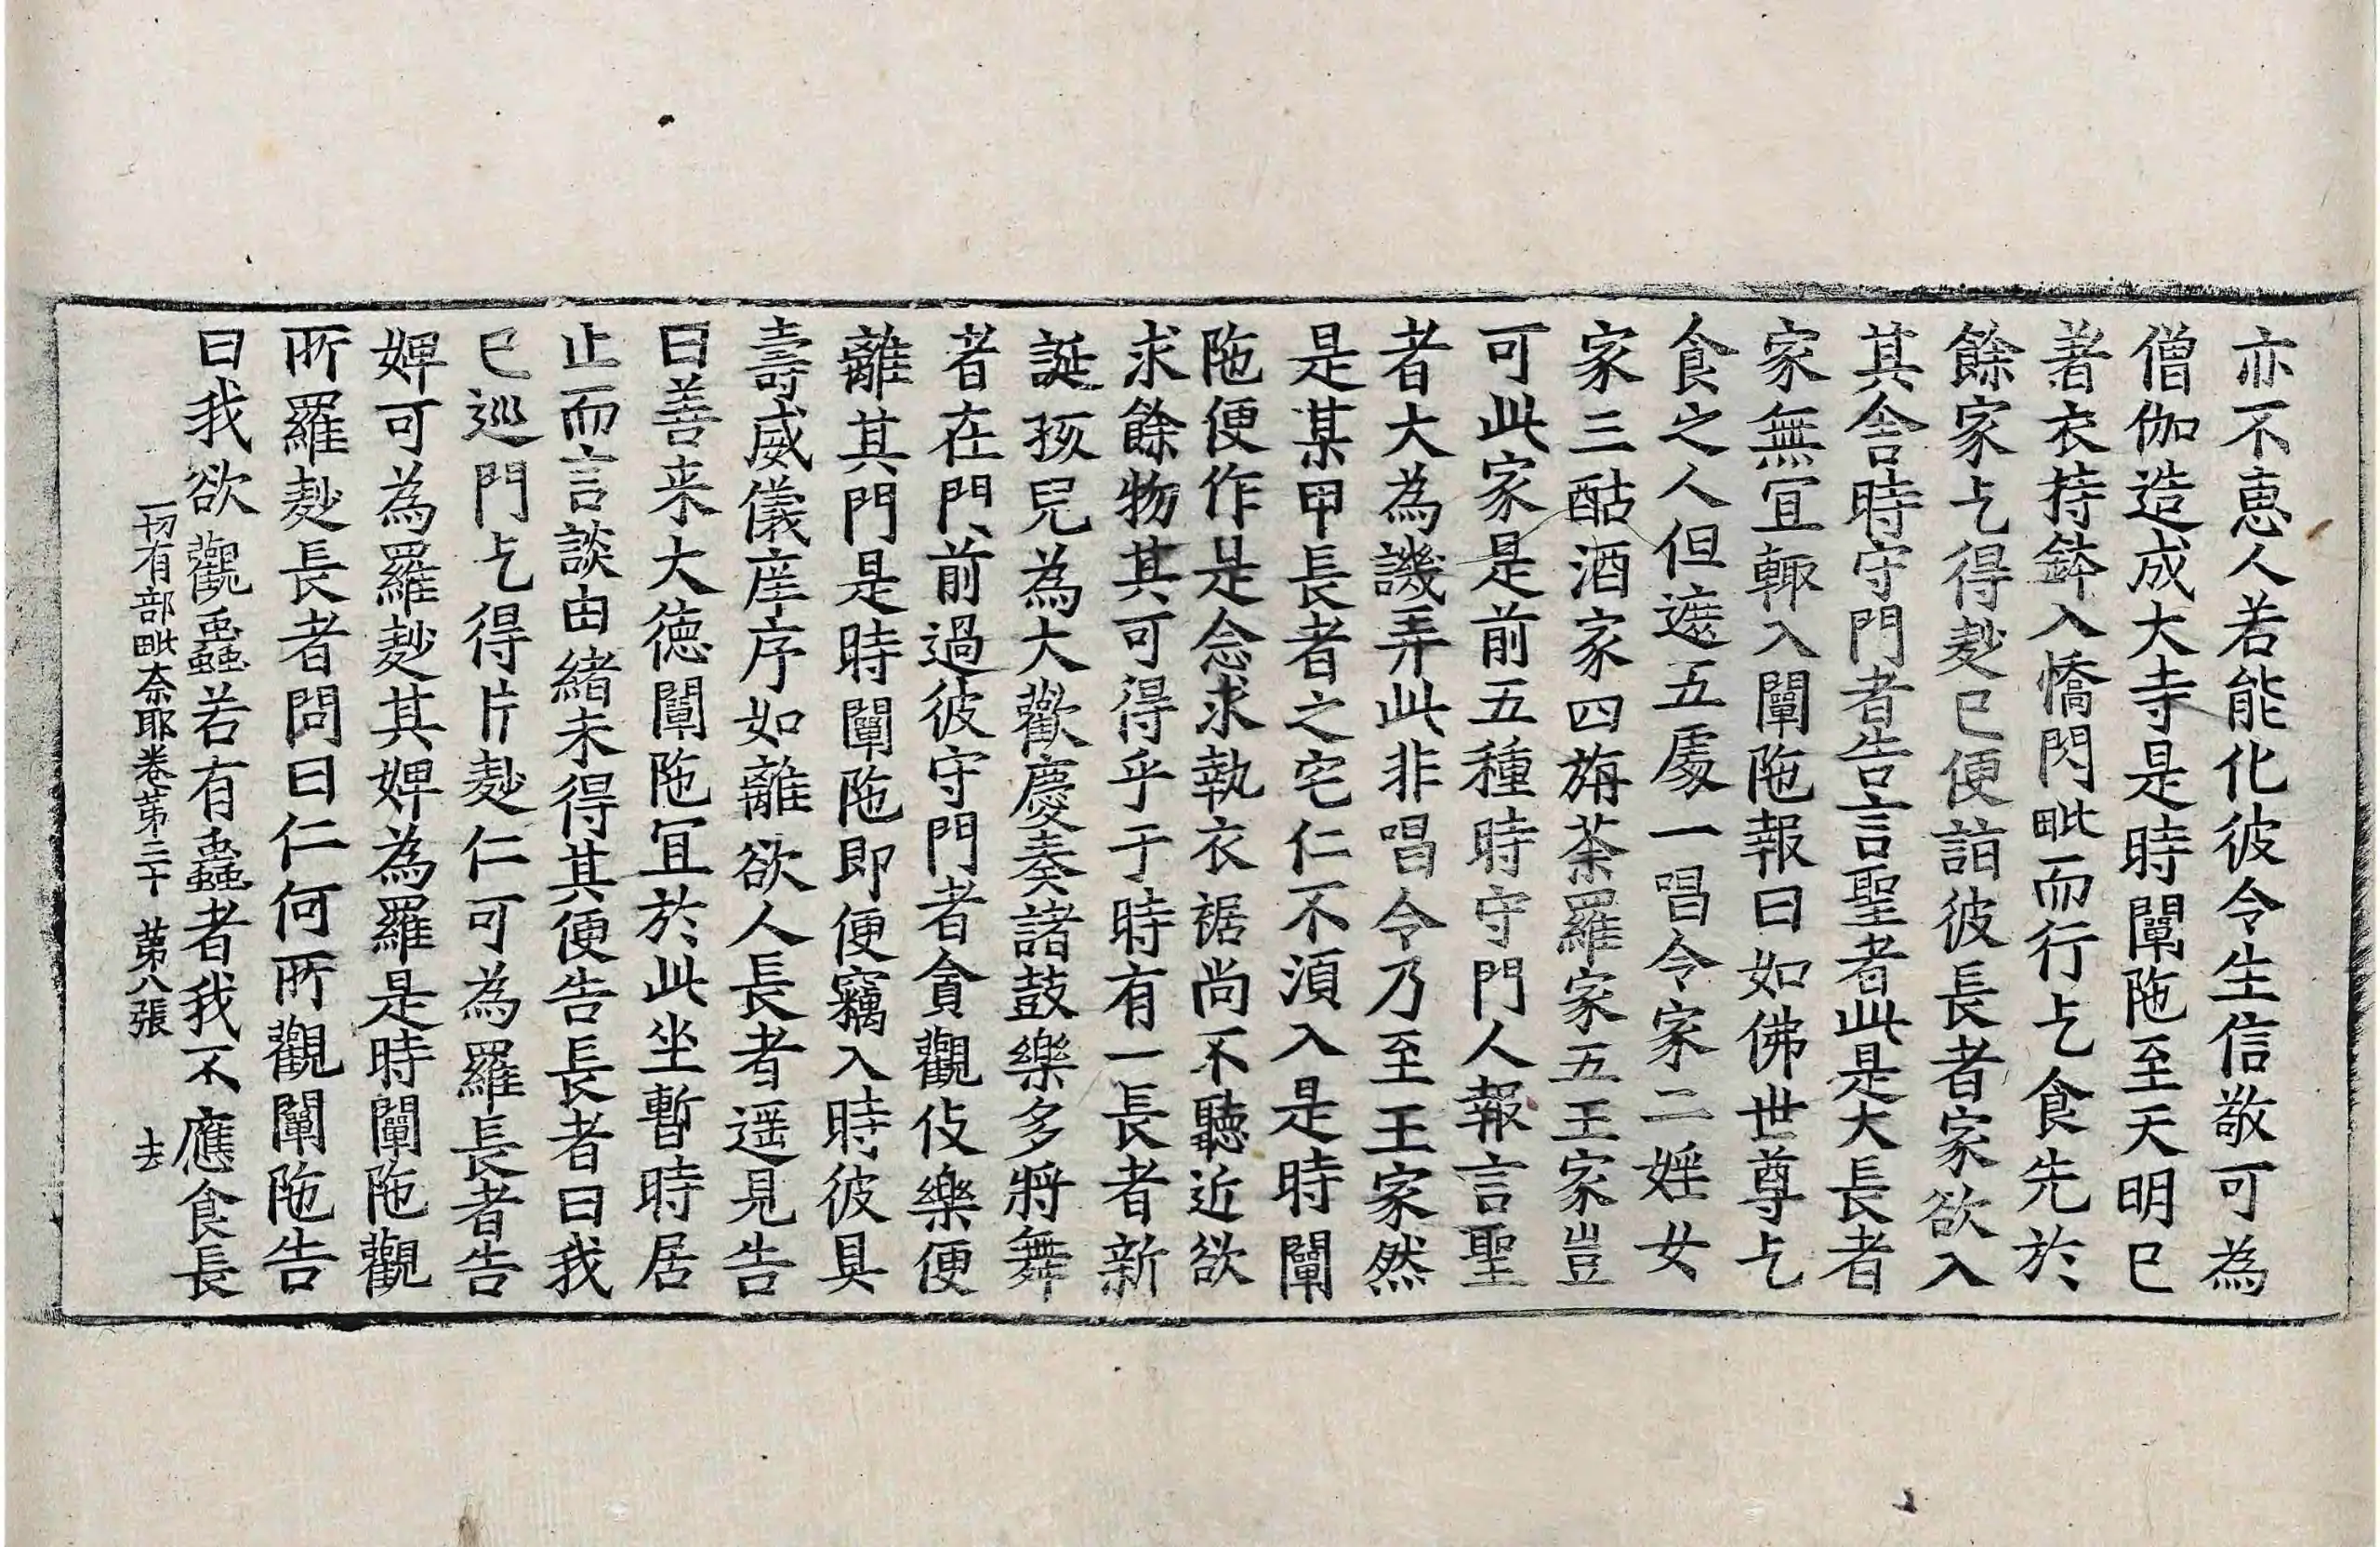 亦不恵人若能化彼令生信敬可為
僧伽造成大寺是時闡陁至天明已
著衣持鉢入憍閃毗而行乞食先於
餘家乞得麨已便詣彼長者家欲入
其舎時守門者告言聖者此是大長者
家無冝輙入闡陁報曰如佛世尊乞
食之人但遮五處一唱令家二婬女
家三酤酒家四旃荼羅家五王家豈
可此家是前五種時守門人報言聖
者大為譏弄此非唱令乃至王家然
是某甲長者之宅仁不湏入是時闡
陁便作是念求執衣裾尚不聽近欲
求餘物其可得乎于時有一長者新
誕孩兒為大歡慶奏諸鼓樂多將舞
者在門前過彼守門者貪觀伎樂便
離其門是時闡陁即便竊入時彼具
壽威儀庠序如離欲人長者遥見告
曰善来大徳闡陁冝於此坐暫時居
止而言談由緒未得其便告長者曰我
已巡門乞得片麨仁可為羅長者告
婢可為羅麨其婢為羅是時闡陁觀
所羅麨長者問曰仁何所觀闡陁告
曰我欲觀蟲若有蟲者我不應食長
一切有部毗奈耶卷苐三十 苐八張 去